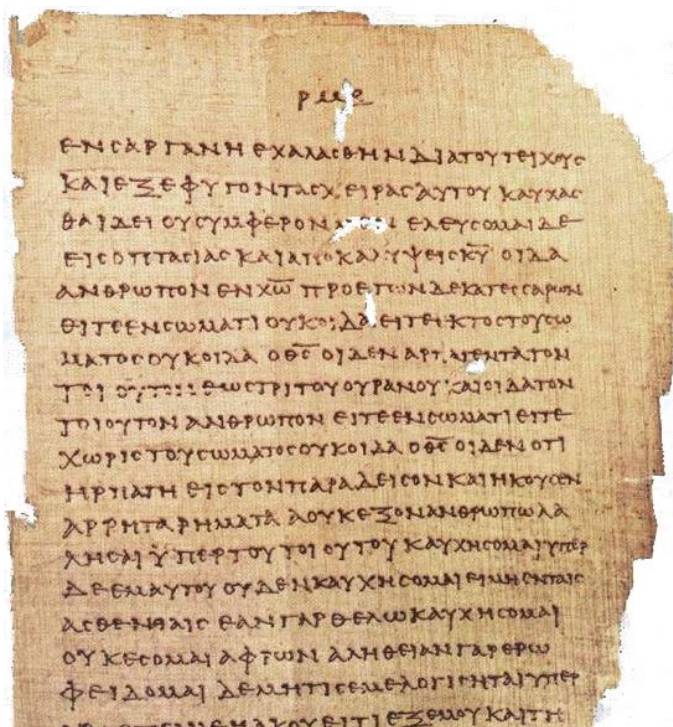 ρμε
ΕΝ ϹΑΡΓΑΝΗ ΕΧΑΛΑϹΘΗΝ ΔΙΑ ΤΟΥ ΤΕΙΧΟΥϹ
ΚΑΙ ΕΞΕΦΥΓΟΝ ΤΑϹ ΧΕΙΡΑϹ ΑΥΤΟΥ ΚΑΥΧΑϹ
ΘΑΙ ΔΕΙ ΟΥ ϹΥΜΦΕΡΟΝ ΕΛΕΥϹΟΜΑΙ ΔΕ
ΕΙϹ ΟΠΤΑϹΙΑϹ ΚΑΙ ΑΠΟΚΑΛΥΨΕΙϹ Κ̅Υ̅ ΟΙΔΑ
ΑΝΘΡΩΠΟΝ ΕΝ Χ̅Ω̅ ΠΡΟ ΕΤΩΝ ΔΕΚΑΤΕϹϹΑΡΩΝ
ΕΙΤΕ ΕΝ ϹΩΜΑΤΙ ΟΥΚ ΟΙΔΑ ΕΙΤΕ ΕΚΤΟϹ ΤΟΥ ϹΩ
ΜΑΤΟϹ ΟΥΚ ΟΙΔΑ Ο Θ̅Ϲ̅ ΟΙΔΕΝ ΑΡΠΑΓΕΝΤΑ ΤΟΝ
ΤΟΙΟΥΤΟΝ ΕΩϹ ΤΡΙΤΟΥ ΟΥΡΑΝΟΥ ΚΑΙ ΟΙΔΑ ΤΟΝ
ΤΟΙΟΥΤΟΝ ΑΝΘΡΩΠΟΝ ΕΙΤΕ ΕΝ ϹΩΜΑΤΙ ΕΙΤΕ
ΧΩΡΙϹ ΤΟΥ ϹΩΜΑΤΟϹ ΟΥΚ ΟΙΔΑ Ο Θ̅Ϲ̅ ΟΙΔΕΝ ΟΤΙ
ΗΡΠΑΓΗ ΕΙϹ ΤΟΝ ΠΑΡΑΔΕΙϹΟΝ ΚΑΙ ΗΚΟΥϹΕΝ
ΑΡΡΗΤΑ ΡΗΜΑΤΑ Α ΟΥΚ ΕΞΟΝ ΑΝΘΡΩΠΩ ΛΑ
ΛΗϹΑΙ ΥΠΕΡ ΤΟΥ ΤΟΙΟΥΤΟΥ ΚΑΥΧΗϹΟΜΑΙ ΥΠΕΡ
ΔΕ ΕΜΑΥΤΟΥ ΟΥΔΕΝ ΚΑΥΧΗϹΟΜΑΙ ΕΙ ΜΗ ΕΝ ΤΑΙϹ
ΑϹΘΕΝΙΑΙϹ ΕΑΝ ΓΑΡ ΘΕΛΩ ΚΑΥΧΗϹΟΜΑΙ
ΟΥΚ ΕϹΟΜΑΙ ΑΦΡΩΝ ΑΛΗΘΕΙΑΝ ΓΑΡ ΕΡΩ
ΦΕΙΔΟΜΑΙ ΔΕ ΜΗ ΤΙϹ ΕΜΕ ΛΟΓΙϹΗΤΑΙ ΥΠΕΡ
ΑΚΟΥΕΙ ΤΙ ΕΞ ΕΜΟΥ ΚΑΙ ΤΗ